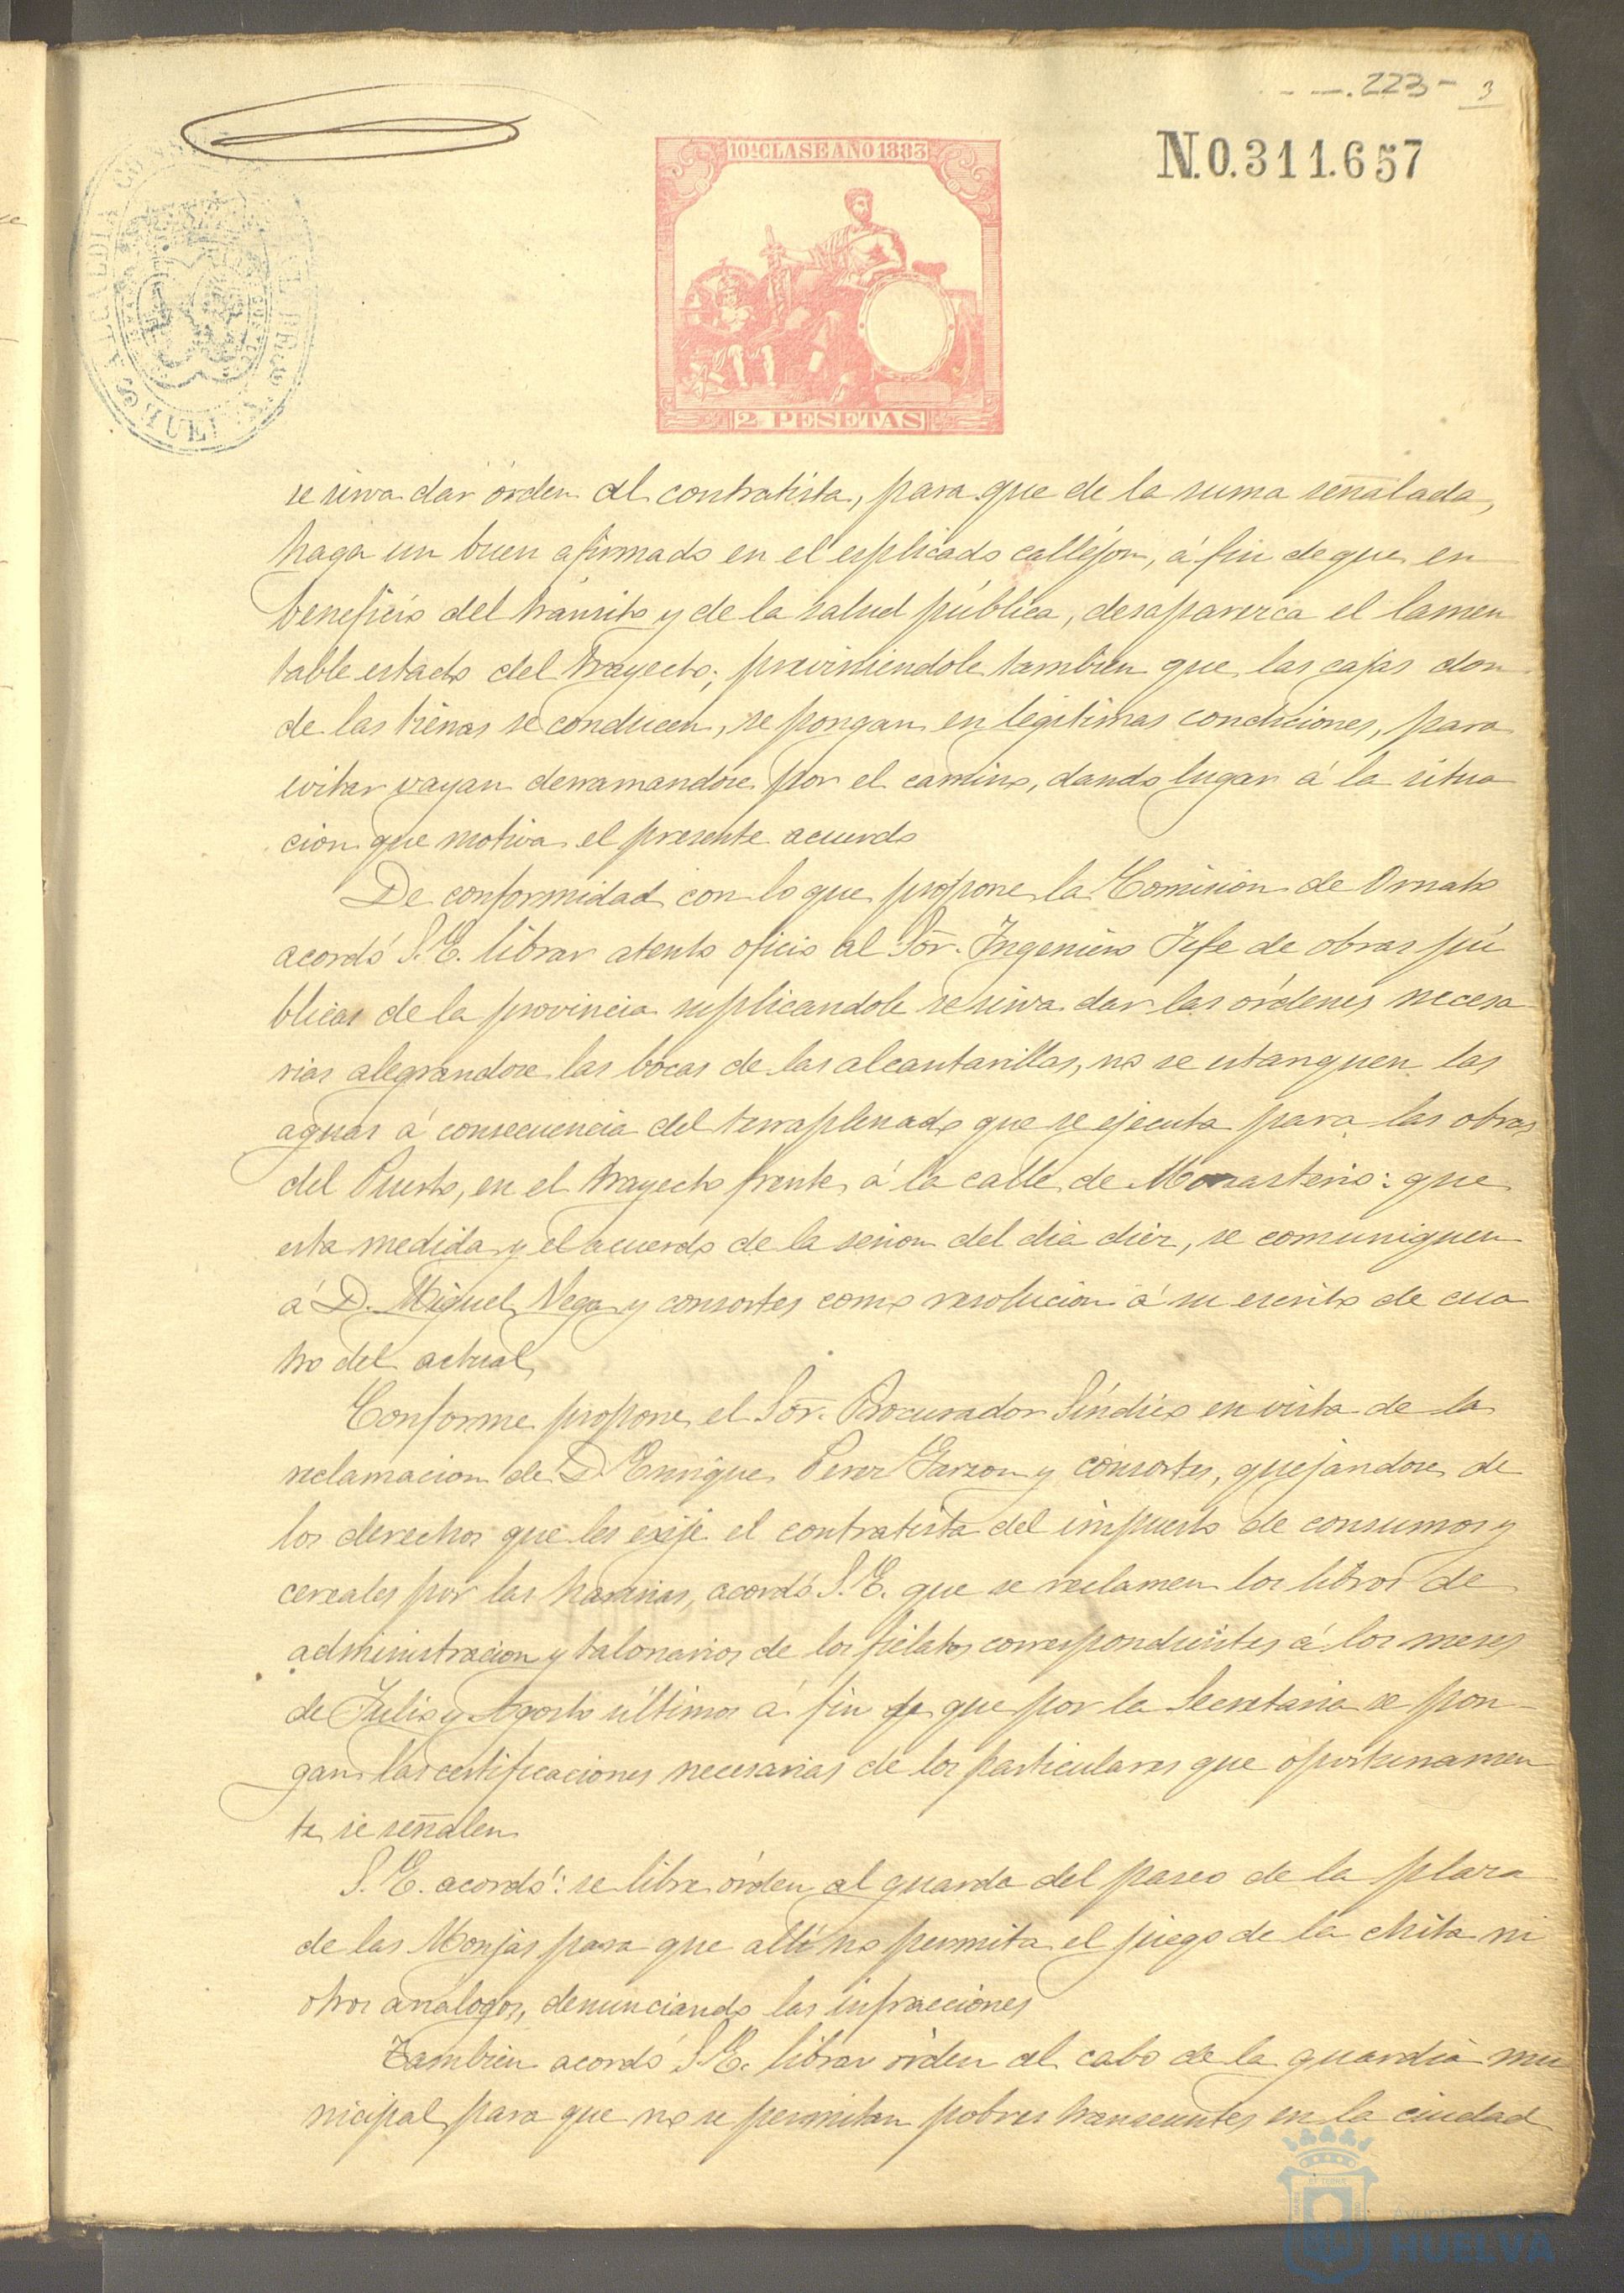 223-
3
10ª CLASE AÑO 1883
N.0.311.657
2 PESETAS
se sirva dar órden al contratista, para que de la suma señalada,
haga un buen afirmado en el esplicado callejon, á fin de que en
beneficio del tránsito y de la salud pública, desaparezca el lamen
table estado del trayecto; previniendole tambien que las cajas don
de las tierras se conducen, se pongan en legitimas condiciones, para
evitar vayan derramandose por el camino, dando lugar á la situa
cion que motiva el presente acuerdo
De conformidad con lo que propone la Comision de Ornato
acordó S.E. librar atento oficio al Sõr. Ingeniero Jefe de obras pú
blicas de la provincia suplicandole se sirva dar las órdenes necesa
rias alegrandose las bocas de las alcantarillas, no se estanquen las
aguas á consecuencia del terraplenado que se ejecuta para las obras
del Puerto, en el trayecto frente á la calle de Monasterio: que
esta medida y el acuerdo de la sesion del dia diez, se comuniquen
á D. Miguel Vega y consortes como resolucion á su escrito de cua
tro del actual
Conforme propone el Sõr. Procurador Síndico en vista de la
reclamacion de D Enrique Perez Garzon y consortes, quejandose de
los derechos que les exije el contratista del impuesto de consumos y
cereales por las harinas, acordó S.E. que se reclamen los libros de
administracion y talonarios de los fielatos correspondientes á los meses
de Julio y Agosto últimos á fin de que por la Secretaria se pon-
gan las certificaciones necesarias de los particulares que oportunamen
te se señalen
S.E. acordó: se libre órden al guarda del paseo de la plaza
de las Monjas para que allí no permita el juego de la chita ni
otros análogos, denunciando las infracciones
Tambien acordó S.E. librar órden al cabo de la guardia mu
nicipal para que no se permitan pobres transeuntes en la ciudad
HUELVA